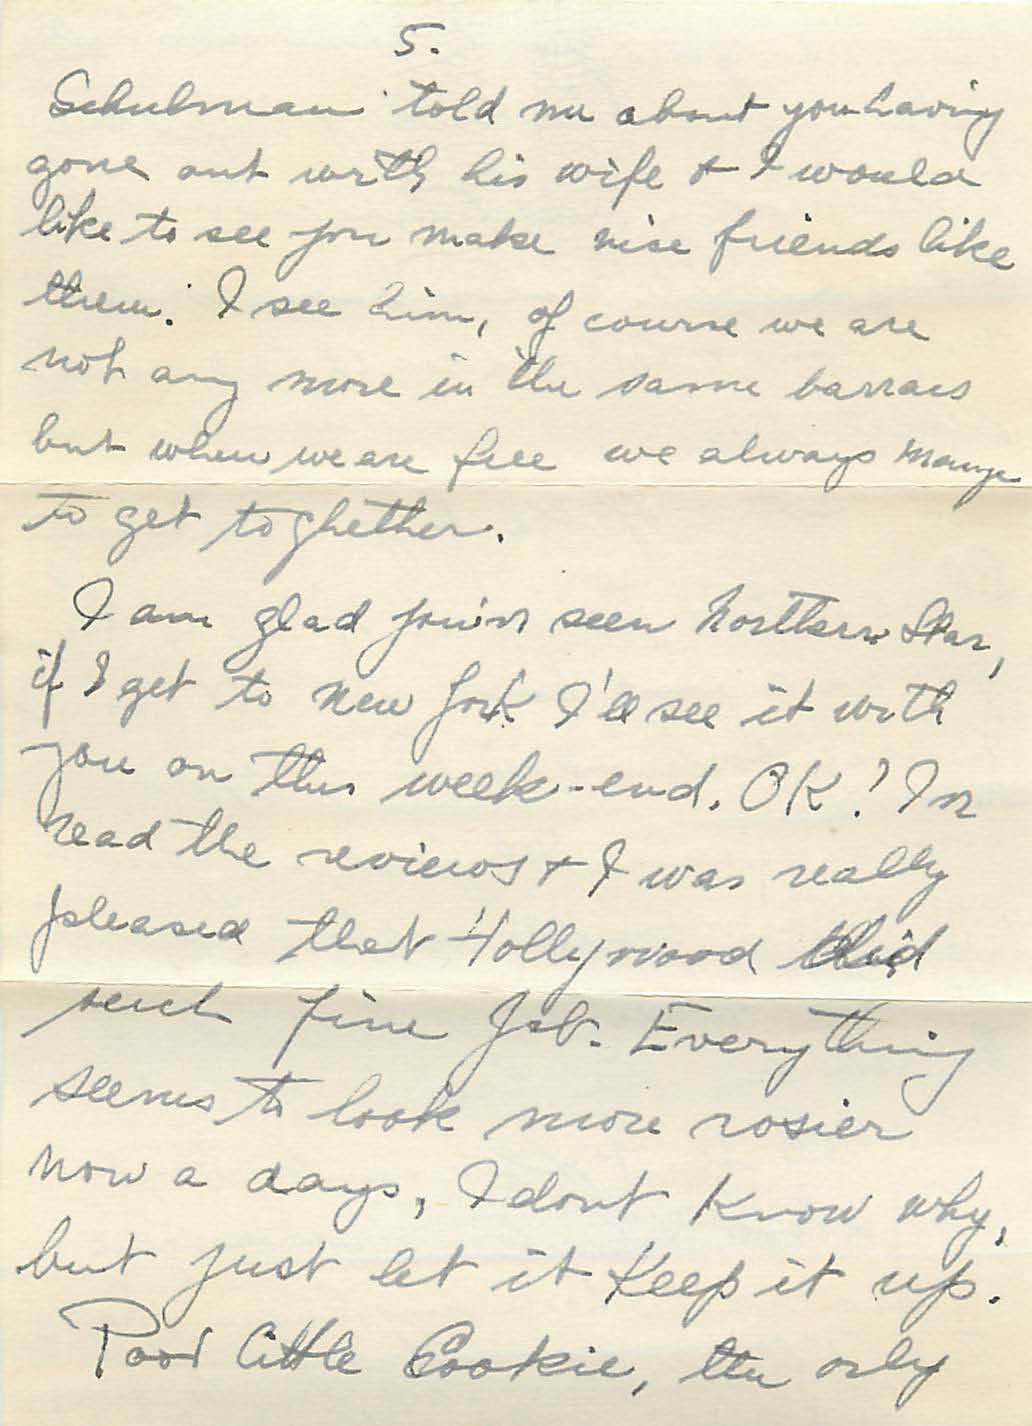 5.
Schulman told me about you having
gone out with his wife + I would
like to see you make nise friends like
them. I see him, of course we are
not any more in the same barracs
but when we are free we always mange
to get toghether.
I am glad you'v seen Northern Star,
if I get to New York I'll see it with
you on this week-end. OK! I'v
read the reviews + I was really
pleased that Hollywood did
such fine job. Everything
seems to look more rosier
now a days, I dont know why,
but just let it keep it up.
Poor little Cookie, the only